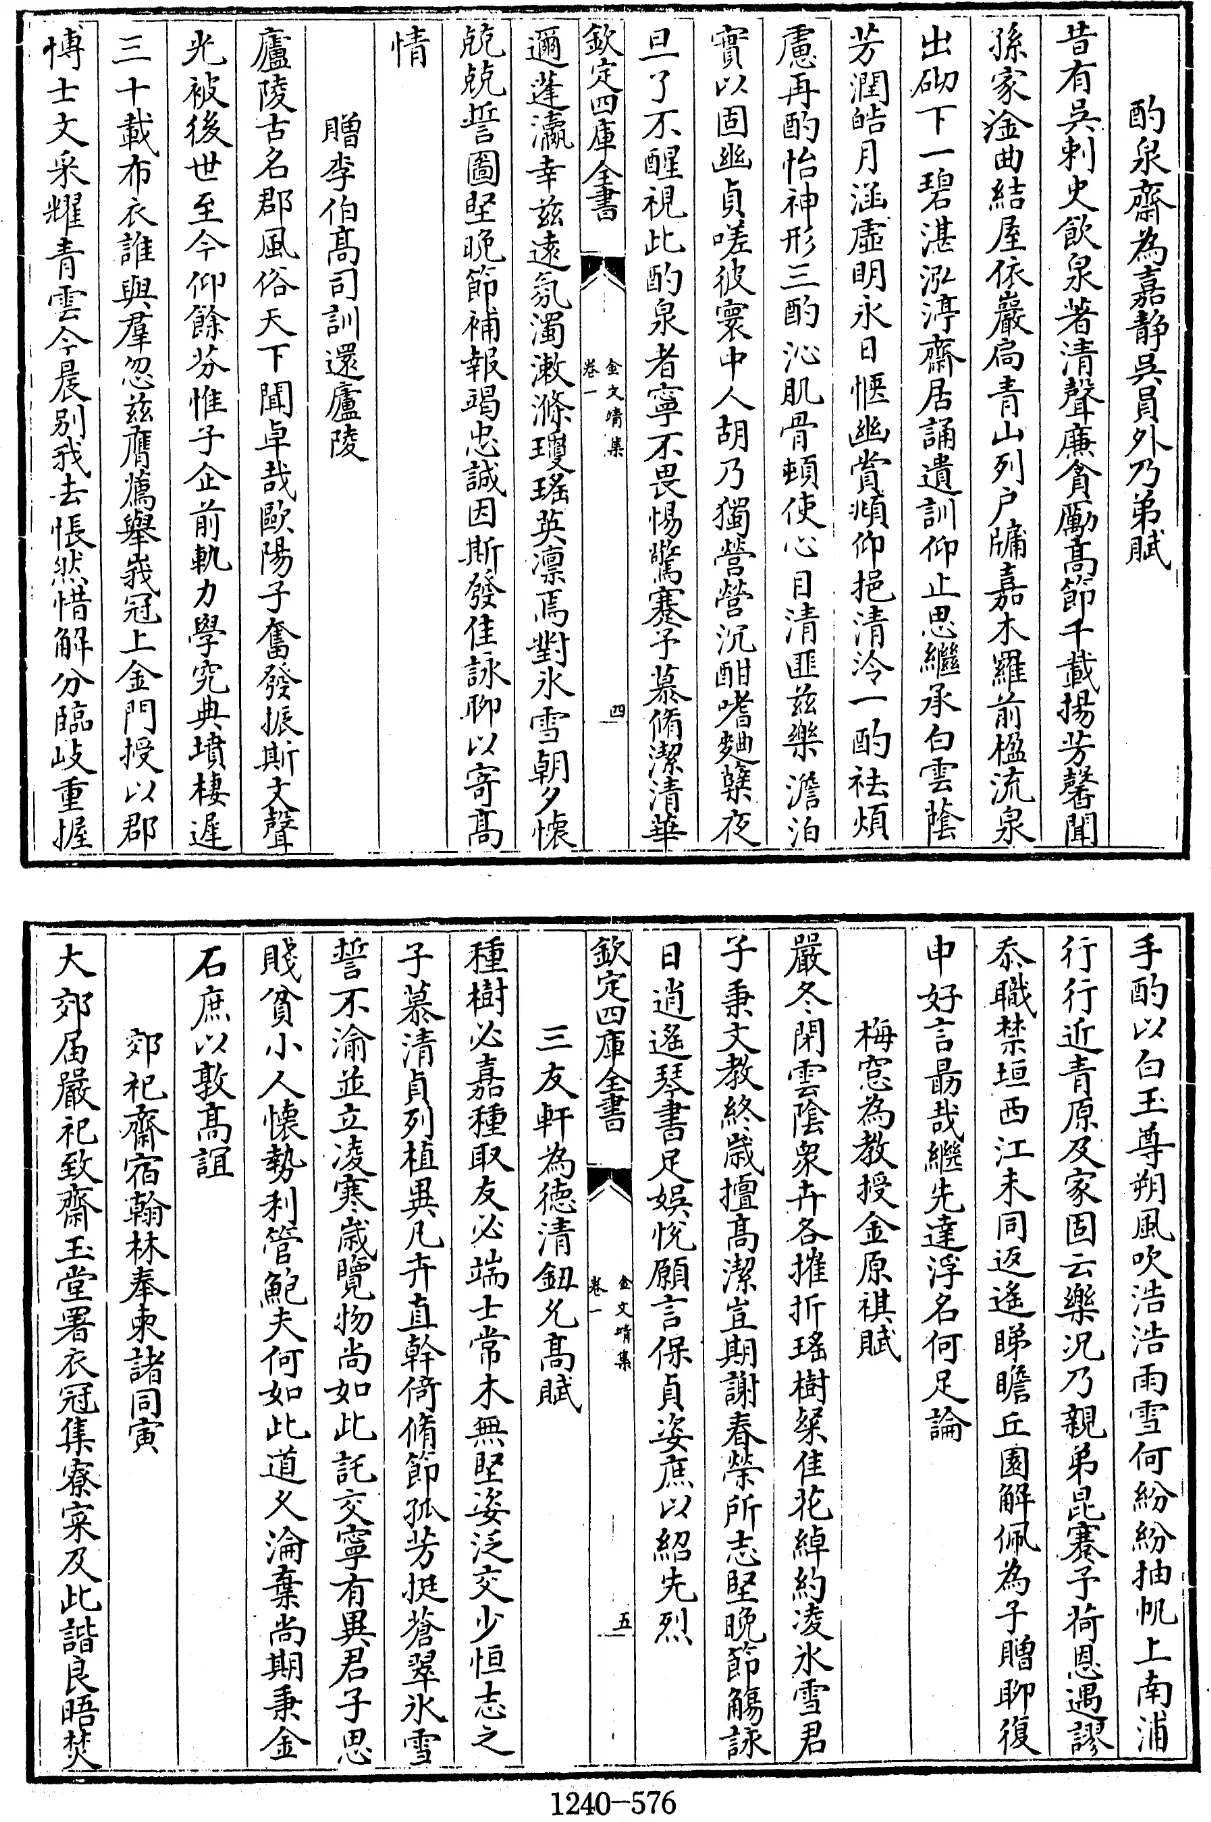 酌泉齋為嘉靜吳員外乃弟賦
昔有吳刺史飲泉著清聲廉貪勵髙節千載揚芳馨聞
孫家淦曲結屋依巖扃青山列戸牖嘉木羅前楹流泉
出砌下一碧湛泓渟齋居誦遺訓仰止思繼承白雲蔭
芳潤皓月涵虛明永日愜幽賞頫仰挹清泠一酌祛煩
慮再酌怡神形三酌沁肌骨頓使心目清匪兹樂澹泊
實以固幽貞嗟彼寰中人胡乃獨營營沉酣嗜麯糵夜
旦了不醒視此酌泉者寧不畏惕驚蹇予慕脩潔清華
欽定四庫全書
金文靖集
卷一
四
邇蓬瀛幸兹逺氛濁漱滌瓊瑤英凛焉對氷雪朝夕懐
兢兢誓圖堅晩節補報竭忠誠因斯發佳詠聊以寄髙
情
贈李伯髙司訓還廬陵
廬陵古名郡風俗天下聞卓哉歐陽子奮發振斯文聲
光被後世至今仰餘芬惟子企前軌力學究典墳棲遲
三十載布衣誰與羣忽兹膺薦舉峩冠上金門授以郡
博士文采耀青雲今晨别我去悵然惜解分臨岐重握
手酌以白玉尊朔風吹浩浩雨雪何紛紛抽帆上南浦
行行近青原及家固云樂况乃親弟昆蹇予荷恩遇謬
忝職禁垣西江未同返遙睇瞻丘園解佩為子贈聊復
申好言勗哉繼先達浮名何足論
梅窓為教授金原祺賦
嚴冬閉雲陰衆卉各摧折瑤樹粲佳花綽約凌氷雪君
子秉文教終歳擅髙潔豈期謝春榮所志堅晩節觴詠
日逍遙琴書足娯恱願言保貞姿庶以紹先烈
欽定四庫全書
金文靖集
卷一
五
三友軒為徳清鈕允髙賦
種樹必嘉種取友必端士常木無堅姿泛交少恒志之
子慕清貞列植異凡卉直幹倚脩節孤芳挺蒼翠氷雪
誓不渝並立凌寒歳覽物尚如此託交寧有異君子思
賤貧小人懐勢利管鮑夫何如此道久淪棄尚期秉金
石庶以敦髙誼
郊祀齋宿翰林奉柬諸同寅
大郊届嚴祀致齋玉堂署衣冠集寮寀及此諧良晤焚
1240-576